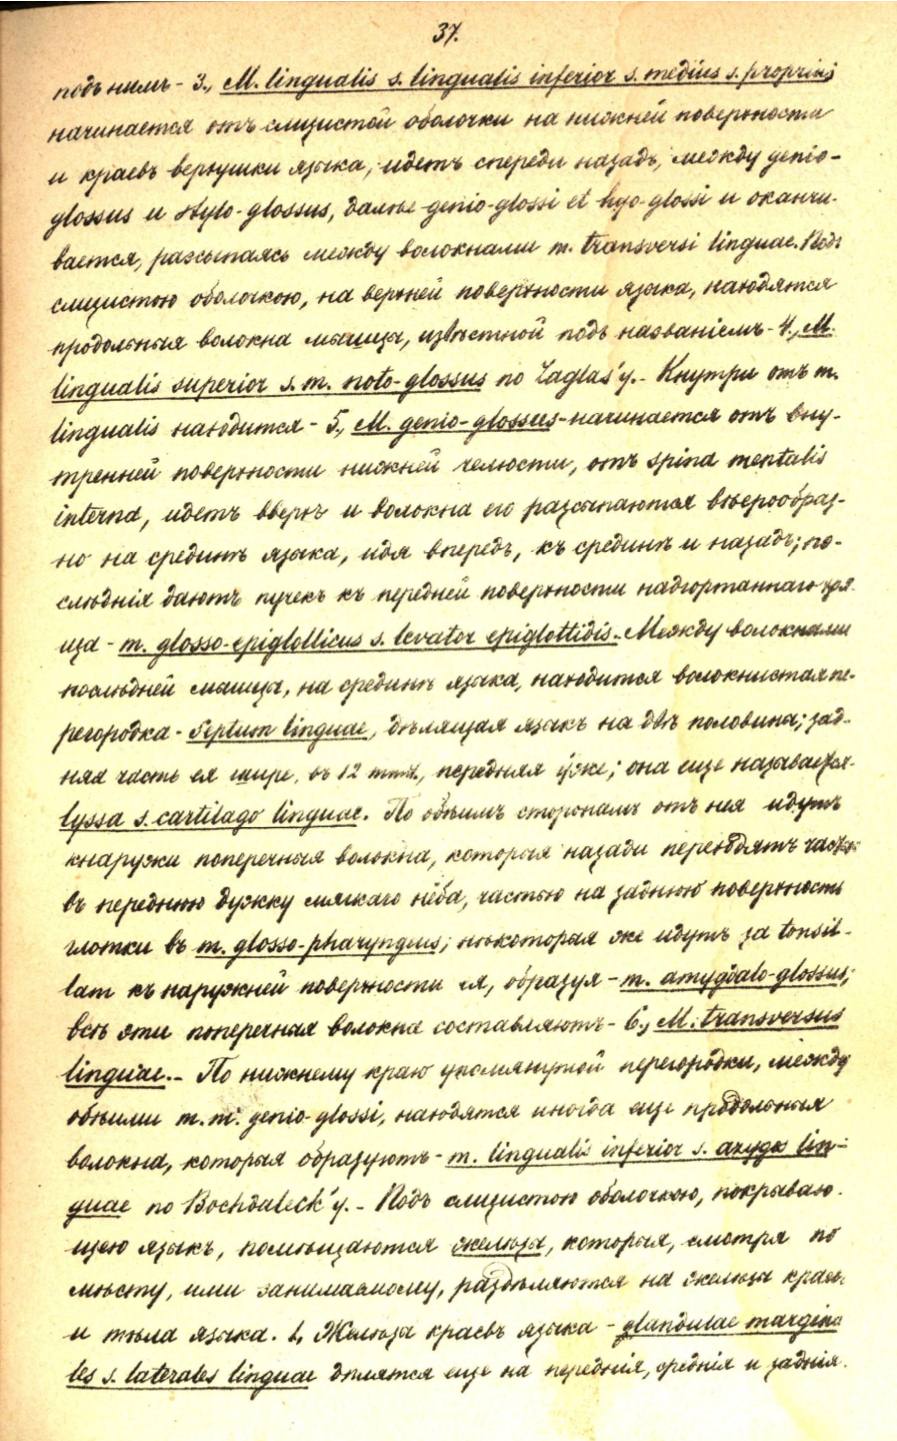 37.
подъ нимъ - 3., M. lingualis s. lingualis inferior s. medius s. proprius
начинается отъ слизистой оболочки на нижней поверхности
и краевъ верхушки языка, идетъ спереди назадъ, между genio-
glossus и stylo-glossus, далѣе genio-glossi et hyo-glossi и оканчи-
вается, разсыпаясь между волокнами m. transversi linguae. Подъ
слизистою оболочкою, на верхней поверхности языка, находятся
продольныя волокна мышцы, извѣстной подъ названіемъ - 4., M.
lingualis superior s. m. noto-glossus по Zaglas'у. - Кнутри отъ m.
lingualis находится - 5., M. genio-glossus - начинается отъ вну-
тренней поверхности нижней челюсти, отъ spina mentalis
interna, идетъ вверхъ и волокна его разсыпаются вѣерообраз-
но на срединѣ языка, идя впередъ, къ срединѣ и назадъ; по-
слѣднія даютъ пучекъ къ передней поверхности надгортаннаго хря-
ща - m. glosso-epiglotticus s. levator epiglottidis. - Между волокнами
послѣдней мышцы, на срединѣ языка, находится волокнистая пе-
регородка - Septum linguae, дѣлящая языкъ на двѣ половины; зад-
няя часть ея шире, въ 12 mmt., передняя уже; она еще называется
lyssa s. cartilago linguae. По обѣимъ сторонамъ отъ нея идутъ
кнаружи поперечныя волокна, которыя назади переходятъ частью
въ переднюю дужку мягкаго нёба, частью на заднюю поверхность
глотки въ m. glosso-pharyngeus; нѣкоторыя же идутъ за tonsil-
lam къ наружней поверхности ея, образуя - m. amygdalo-glossus;
всѣ эти поперечныя волокна составляютъ - 6., M. transversus
linguae. - По нижнему краю упомянутой перегородки, между
обѣими m. m. genio-glossi, находятся иногда еще продольныя
волокна, которыя образуютъ - m. lingualis inferior s. azygos lin-
guae по Bochdaleck'у. - Подъ слизистою оболочкою, покрываю-
щею языкъ, помѣщаются железы, которыя, смотря по
мѣсту, ими занимаемому, раздѣляются на железы краевъ
и тѣла языка. 1, Железы краевъ языка - glandulae margina
les s. laterales linguae дѣлятся еще на переднія, среднія и заднія.